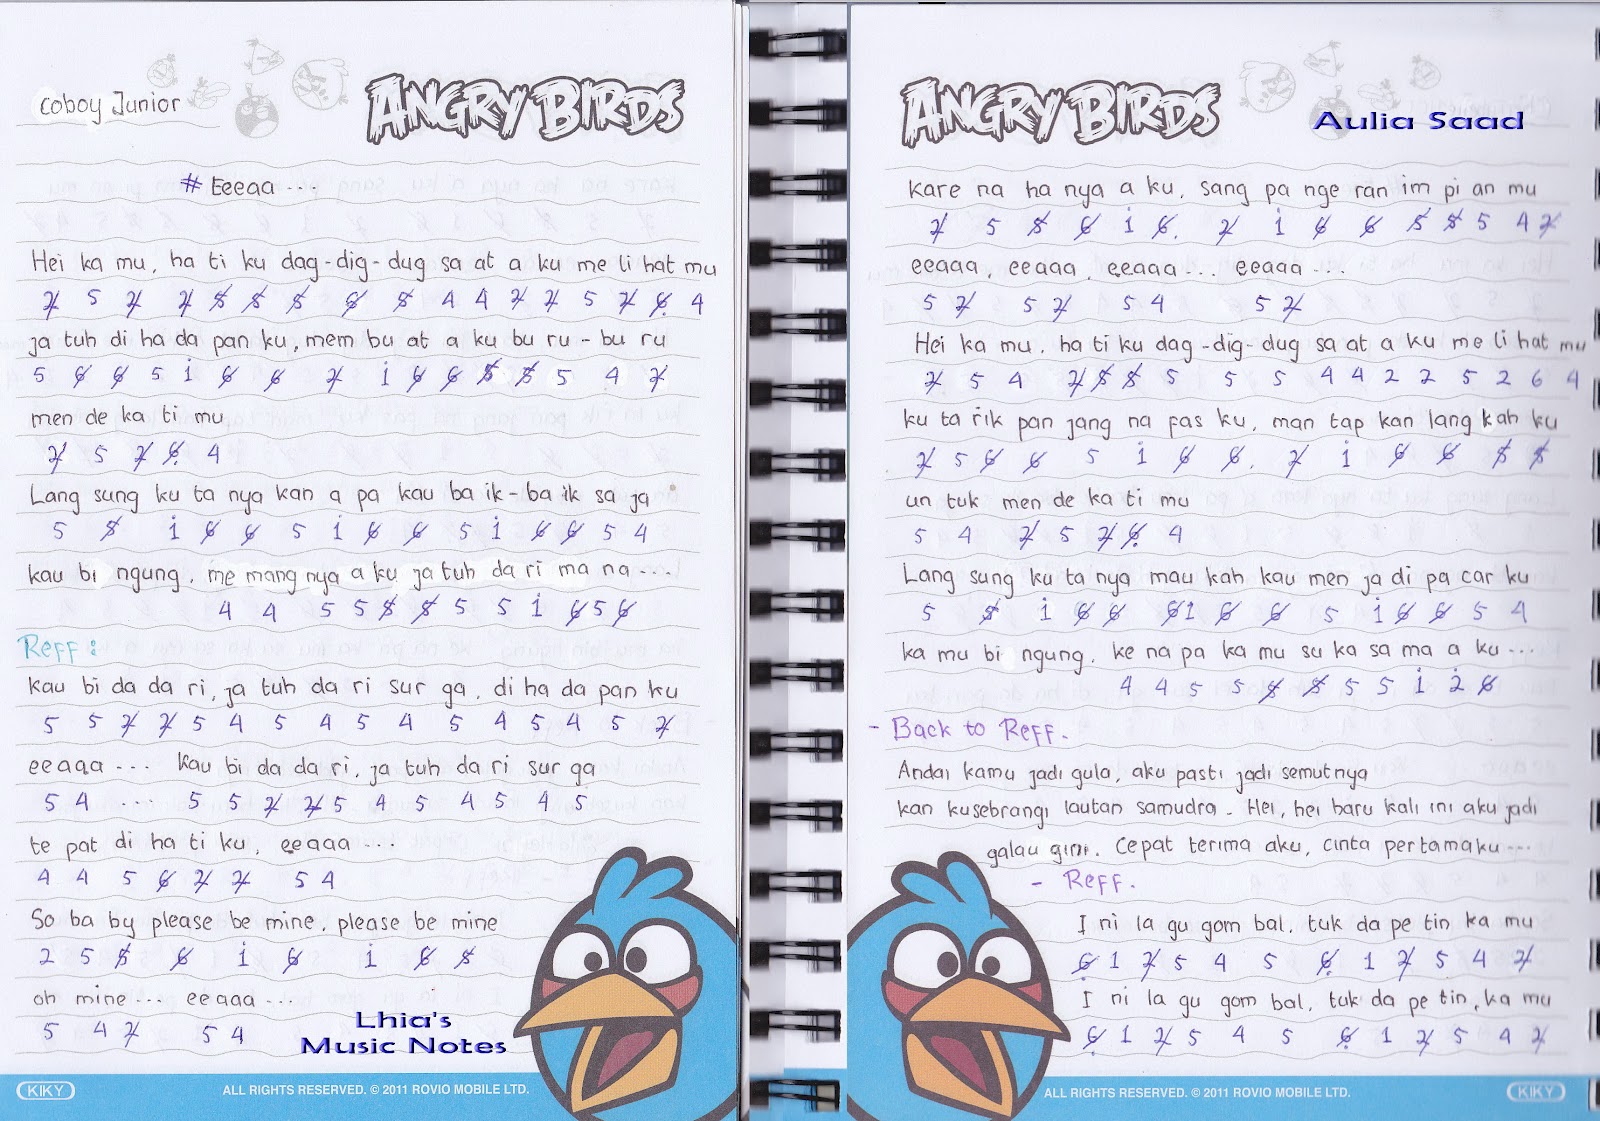 Coboy Junior
ANGRY BIRDS
# Eeeaa ...
Hei ka mu, ha ti ku dag-dig-dug sa at a ku me li hat mu
2 5 2 2 5 5 5 6 5 4 4 2 2 5 2 6 4
ja tuh di ha da pan ku, mem bu at a ku bu ru - bu ru
5 6 6 5 1 6 6 2 1 6 6 5 5 5 4 2
men de ka ti mu
2 5 2 6 4
Lang sung ku ta nya kan a pa kau ba ik-ba ik sa ja
5 5 1 6 6 5 1 6 6 5 1 6 6 5 4
kau bi ngung, me mang nya a ku ja tuh da ri ma na ...
4 4 5 5 5 5 5 5 1 6 5 6
Reff :
kau bi da da ri, ja tuh da ri sur ga, di ha da pan ku
5 5 2 2 5 4 5 4 5 4 5 4 5 4 5 2
eeaaa ... Kau bi da da ri, ja tuh da ri sur ga
5 4 ... 5 5 2 2 5 4 5 4 5 4 5
te pat di ha ti ku, eeaaa ...
4 4 5 6 2 2 5 4
So ba by please be mine, please be mine
2 5 5 6 1 6 1 6 5
oh mine ... eeaaa ...
5 4 2 5 4
Lhia's
Music Notes
KIKY
ALL RIGHTS RESERVED. © 2011 ROVIO MOBILE LTD.
ANGRY BIRDS
Aulia Saad
Kare na ha nya a ku, sang pa nge ran im pi an mu
2 5 5 6 1 6. 2 1 6 6 5 5 5 4 2
eeaaa, eeaaa, eeaaa ... eeaaa ...
5 2 5 2 5 4 5 2
Hei ka mu, ha ti ku dag-dig-dug sa at a ku me li hat mu
2 5 4 2 5 5 5 5 5 4 4 2 2 5 2 6 4
ku ta rik pan jang na fas ku, man tap kan lang kah ku
2 5 6 6 5 1 6 6. 2 1 6 6 5 5
un tuk men de ka ti mu
5 4 2 5 2 6 4
Lang sung ku ta nya mau kah kau men ja di pa car ku
5 5 1 6 6 6 1 6 6 5 1 6 6 5 4
ka mu bi ngung, ke na pa ka mu su ka sa ma a ku ...
4 4 5 5 5 5 5 5 1 2 6
- Back to Reff.
Andai kamu jadi gula, aku pasti jadi semutnya
kan kusebrangi lautan samudra. Hei, hei baru kali ini aku jadi
galau gini. Cepat terima aku, cinta pertamaku ...
- Reff.
I ni la gu gom bal, tuk da pe tin ka mu
6 1 2 5 4 5 6 1 2 5 4 2
I ni la gu gom bal, tuk da pe tin, ka mu
6 1 2 5 4 5 6 1 2 5 4 2
ALL RIGHTS RESERVED. © 2011 ROVIO MOBILE LTD.
KIKY